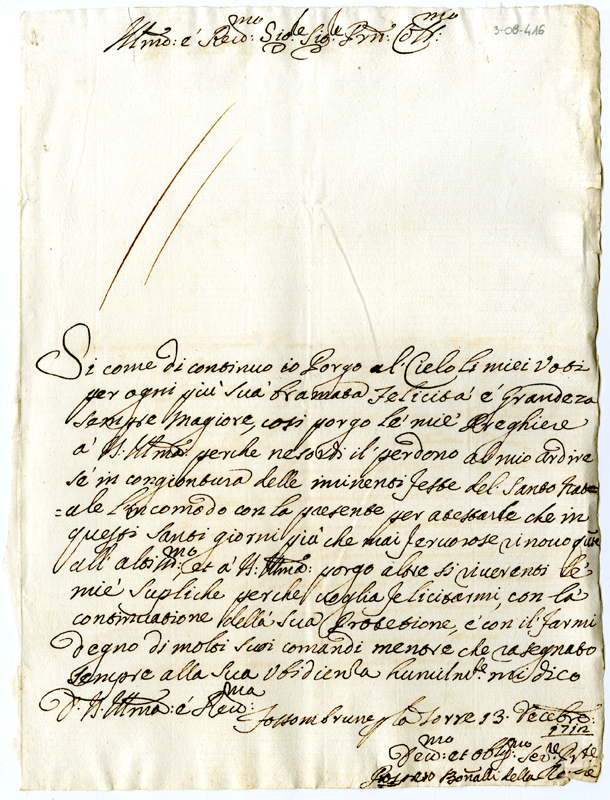 Illmo: é Revd:mo Sig:re Sig:re Prn: Col:mo
3-08-416
Si come di continuo io Porgo al Cielo li miei Voti
per ogni piú sua bramata Felicitá é Grandeza
sempre Magiore, cosi porgo le mié Preghiere
á V: Illma: perche ne sorti il perdono al mio ardire
sé in congiontura delle iminenti feste del Santo Nata=
=le l'incomodo con la presente per atestarle che in
questi Santi giorni piú che mai fervorose rinovo
all' altis:mo, et á V: Illma: porgo altre si riverenti le
mié supliche perche voglia felicitarmi, con la
continuatione della sua Protetione, é con il farmi
degno di molti suoi comandi mentre che rasegnato
sempre alla sua Ubidienza humilm:te mi dico
D: V: Illma: é Revd:ma
Fossombrune p la Torre 13: Decebre:
1712
Devd:mo et oblig:mo Ser:re
Bonalli della